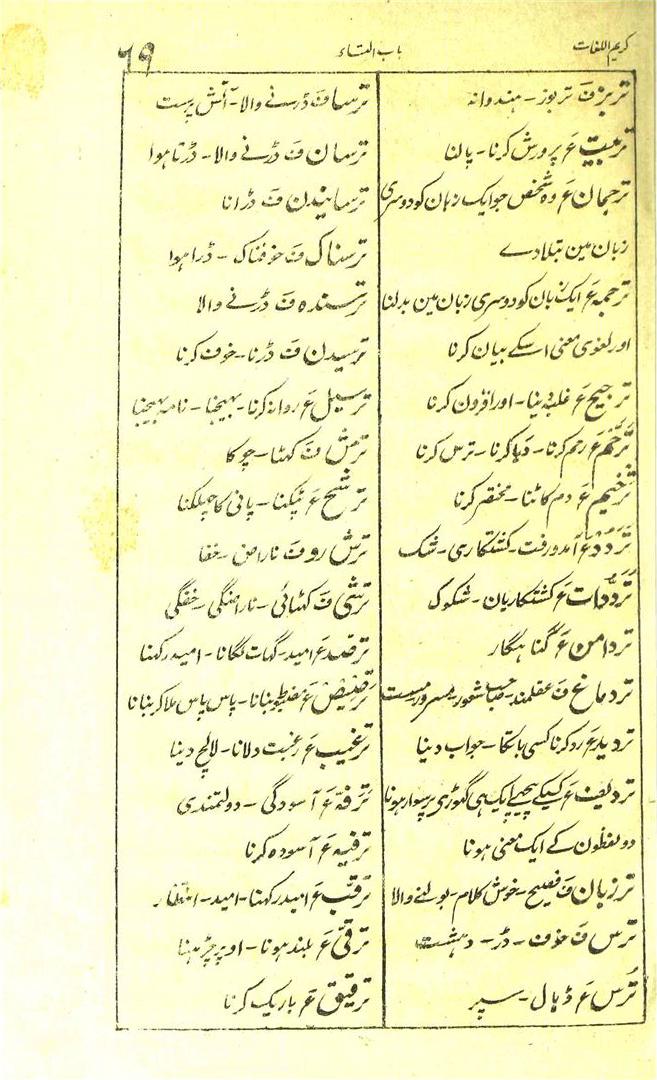 کریم اللغات
باب التاء
٦٩
تربز ف تربوز۔ ہندوانہ
تربیت ع پرورش کرنا۔ پالنا
ترجمان ع وہ شخص جو ایک زبان کو دوسری
زبان مین بتلا دے
ترجمہ ع ایک زبان کو دوسری زبان مین بدلنا
اور لغوی معنی اسکے بیان کرنا
ترجیح ع غلبہ دینا۔ اور افزون کرنا
ترحّم ع رحم کرنا۔ دیا کرنا۔ ترس کرنا
ترخیم ع دم کاٹنا۔ مختصر کرنا
تردّد ع آمد و رفت۔ کشتکاری۔ شک
تردّدات ع کشتکاریان۔ شکوک
تردامن ع گناہگار
تردماغ ف عقلمند۔ صاحب شعور۔ مسرور۔ مست
تردید ع رد کرنا کسی بات کا۔ جواب دینا
تردیف ع کسیکے پیچھے ایک ہی گھوڑی پر سوار ہونا
دو لفظون کے ایک معنی ہونا
تر زبان ف فصیح۔ خوش کلام۔ بولنے والا
ترس ف خوف۔ ڈر۔ دہشت
تُرس ع ڈہال۔ سپر
ترسا ف ڈرنے والا۔ آتش پرست
ترسان ف ڈرنے والا۔ ڈرتا ہوا
ترسانیدن ف ڈرانا
ترسناک ف خوفناک۔ ڈرا ہوا
ترسندہ ف ڈرنے والا
ترسیدن ف ڈرنا۔ خوف کرنا
ترسیل ع روانہ کرنا۔ بہیجنا۔ نامہ بہیجنا
ترش ف کہٹا۔ چوکا
ترشح ع ٹپکنا۔ پانی کا چھلکنا
ترش رو ف ناراض۔ خفا
ترشی ف کہٹائی۔ ناراضگی۔ خفگی
ترصد ع امید۔ گہات لگانا۔ امید رکہنا
ترصیص ع مضبوط بنانا۔ پاس پاس ملا کر بنانا
ترغیب ع رغبت دلانا۔ لالچ دینا
ترفّہ ع آسودگی۔ دولتمندی
ترفیہ ع آسودہ کرنا
ترقّب ع امید رکہنا۔ امید۔ انتظار
ترقّی ع بلند ہونا۔ اوپر چڑہنا
ترقیق ع باریک کرنا